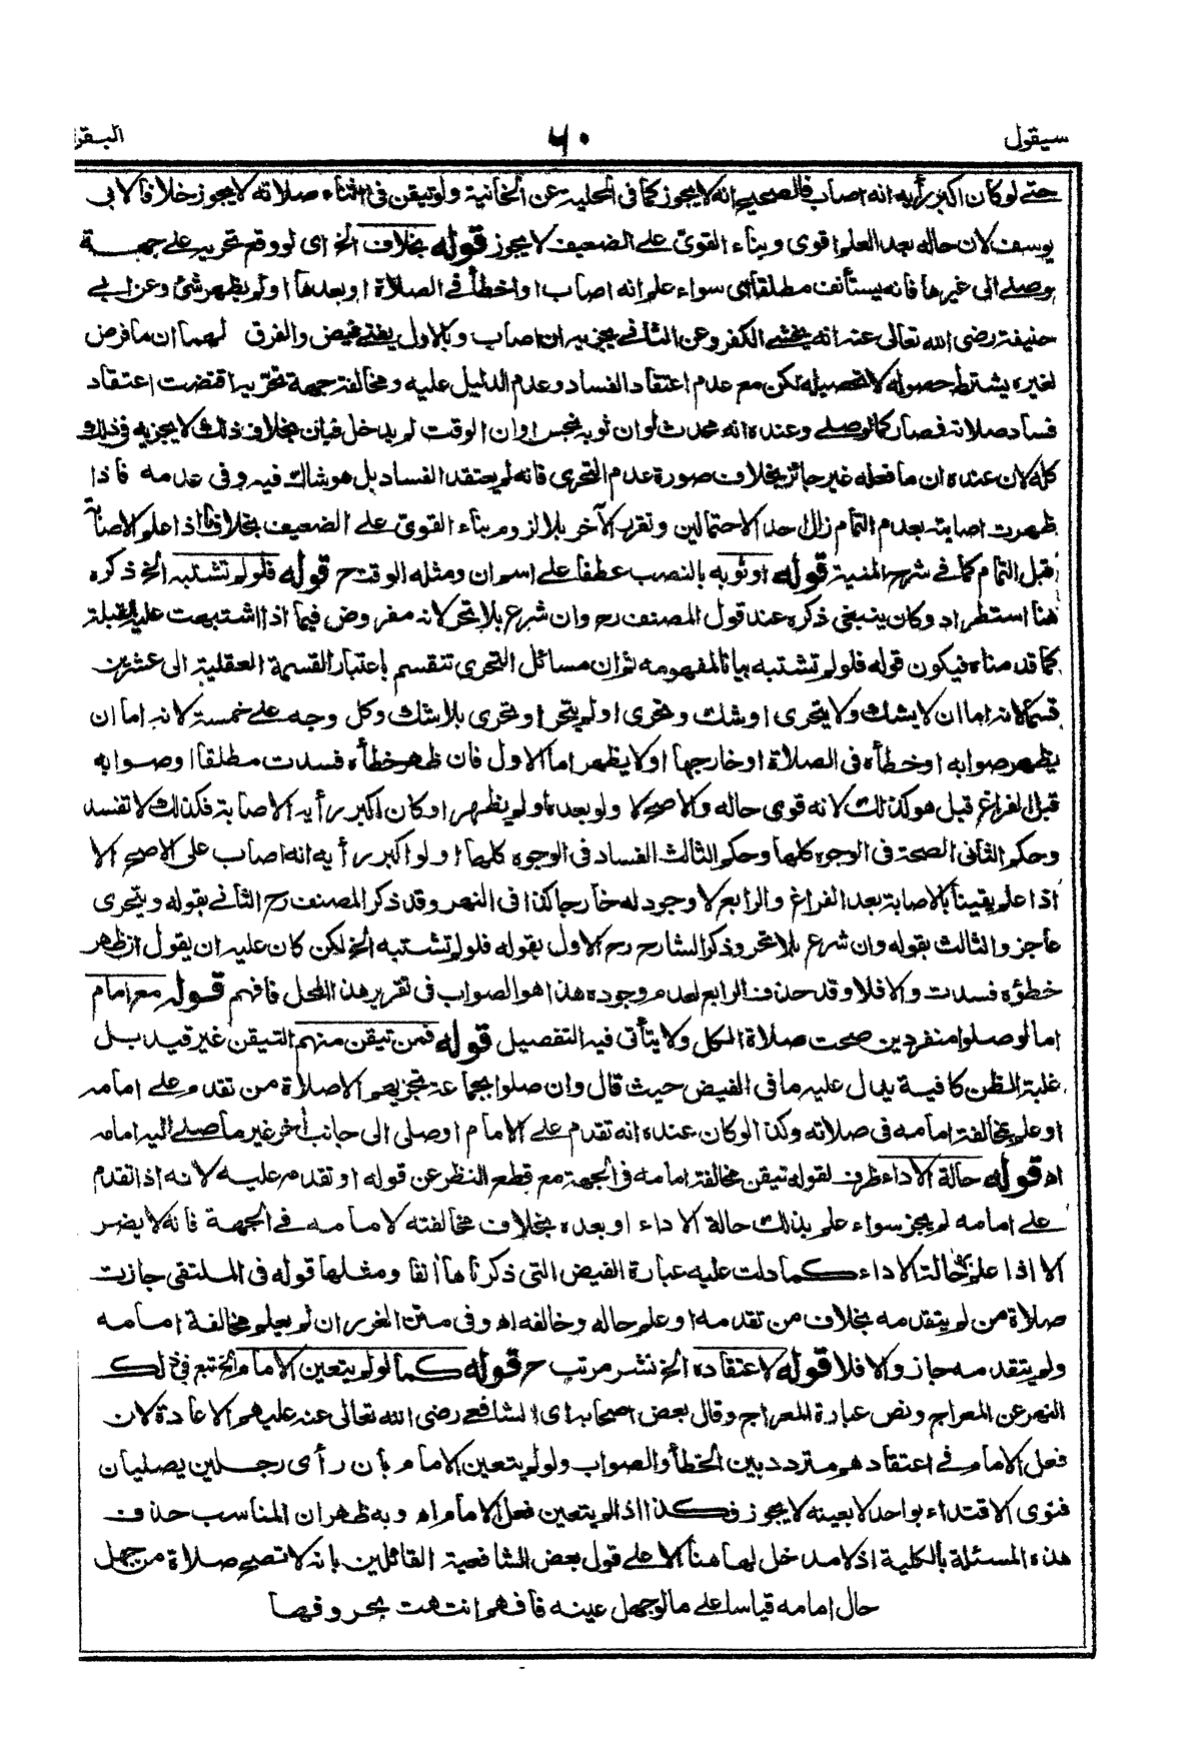 سيقول
٦٠
البقر
حتى لو كان اكبر رأيه انه اصاب فالصحيح انه لا يجوز كما فى الحلية عن الخانية ولو تيقن فى اثناء صلاته لا يجوز خلافا لابى
يوسف لان حاله بعد العلم اقوى وبناء القوى على الضعيف لا يجوز قوله بخلاف الخ اى لو وقع تحريه على جهة
وصلى الى غيرها فانه يستأنف مطلقا اى سواء علم انه اصاب او اخطأ فى الصلاة او بعدها او لم يظهر شئ وعن ابى
حنيفة رضى الله تعالى عنه انه يخشى الكفر وعن الثانى يجزيه ان اصاب وبالاول يفتى فيض والفرق لهما ان ما فرض
لغيره يشترط حصوله لا تحصيله لكن مع عدم اعتقاد الفساد وعدم الدليل عليه ومخالفة جهة تحريه اقتضت اعتقاد
فساد صلاته فصار كما لو صلى وعنده انه محدث او ان ثوبه نجس او ان الوقت لم يدخل فبان بخلاف ذلك لا يجزيه فى ذلك
كله لان عنده ان ما فعله غير جائز بخلاف صورة عدم التحرى فانه لم يعتقد الفساد بل هو شاك فيه وفى عدمه فاذا
ظهرت اصابته بعد التمام زال احد الاحتمالين وتقرر الآخر بلا لزوم بناء القوى على الضعيف بخلاف ما اذا علم الاصابة
قبل التمام كما فى شرح المنية قوله او ثوبه بالنصب عطفا على اسم ان ومثله الوقت ح قوله فلو لم تشتبه الخ ذكره
هنا استطراد وكان ينبغى ذكره عند قول المصنف رح وان شرع بلا تحر لانه مفروض فيما اذا اشتبهت عليه القبلة
كما قدمناه فيكون قوله فلو لم تشتبه بيانا لمفهومه ثم ان مسائل التحرى تنقسم باعتبار القسمة العقلية الى عشرين
قسما لانه اما ان لا يشك ولا يتحرى او شك وتحرى او لم يتحر او تحرى بلا شك وكل وجه على خمسة لانه اما ان
يظهر صوابه او خطأه فى الصلاة او خارجها او لا يظهر اما الاول فان ظهر خطأه فسدت مطلقا او صوابه
قبل الفراغ قيل هو كذلك لانه قوى حاله والاصح لا ولو بعده او لم يظهر او كان اكبر رأيه الاصابة فكذلك لا تفسد
وحكم الثانى الصحة فى الوجوه كلها وحكم الثالث الفساد فى الوجوه كلها او لو اكبر رأيه انه اصاب على الاصح الا
اذا علم يقينا بالاصابة بعد الفراغ والرابع لا وجود له خارجا كذا فى النهر وقد ذكر المصنف رح الثانى بقوله ويتحرى
عاجز والثالث بقوله وان شرع بلا تحر وذكر الشارح رح الاول بقوله فلو لم تشتبه الخ لكن كان عليه ان يقول ان ظهر
خطؤه فسدت والا فلا وقد حذف الرابع لعدم وجوده هذا هو الصواب فى تقرير هذا المحل فافهم قوله مع امام
اما لو صلوا منفردين صحت صلاة الكل ولا يتأتى فيه التفصيل قوله فمن تيقن منهم التيقن غير قيد بل
غلبة الظن كافية يدل عليه ما فى الفيض حيث قال وان صلوا بجماعة تجزيهم الا صلاة من تقدم على امامه
او علم بمخالفة امامه فى صلاته وكذا لو كان عنده انه تقدم على الامام او صلى الى جانب آخر غير ما صلى اليه امامه
اه قوله حالة الاداء ظرف لقوله تيقن مخالفة امامه فى الجهة مع قطع النظر عن قوله او تقدم عليه لانه اذا تقدم
على امامه لم يجز سواء علم بذلك حالة الاداء او بعده بخلاف مخالفته لامامه فى الجهة فانه لا يضر
الا اذا علم بها حالة الاداء كما دلت عليه عبارة الفيض التى ذكرناها آنفا ومثلها قوله فى الملتقى جازت
صلاة من لم يتقدمه بخلاف من تقدمه او علم حاله وخالفه اه وفى متن الغرر ان لم يعلم مخالفة امامه
ولم يتقدمه جاز والا فلا قوله لاعتقاده الخ نشر مرتب ح قوله كما لو لم يتعين الامام الخ تبع فى ذلك
النهر عن المعراج ونص عبارة المعراج وقال بعض اصحابه اى الشافعى رضى الله تعالى عنه عليهم الاعادة لان
فعل الامام فى اعتقادهم متردد بين الخطأ والصواب ولو لم يتعين الامام بأن رأى رجلين يصليان
فنوى الاقتداء بواحد لا بعينه لا يجوز فكذا اذا لم يتعين فعل الامام اه وبه ظهر ان المناسب حذف
هذه المسئلة بالكلية اذ لا مدخل لها هنا الا على قول بعض الشافعية القائلين بانه لا تصح صلاة من جهل
حال امامه قياسا على ما لو جهل عينه فافهم انتهت بحروفها